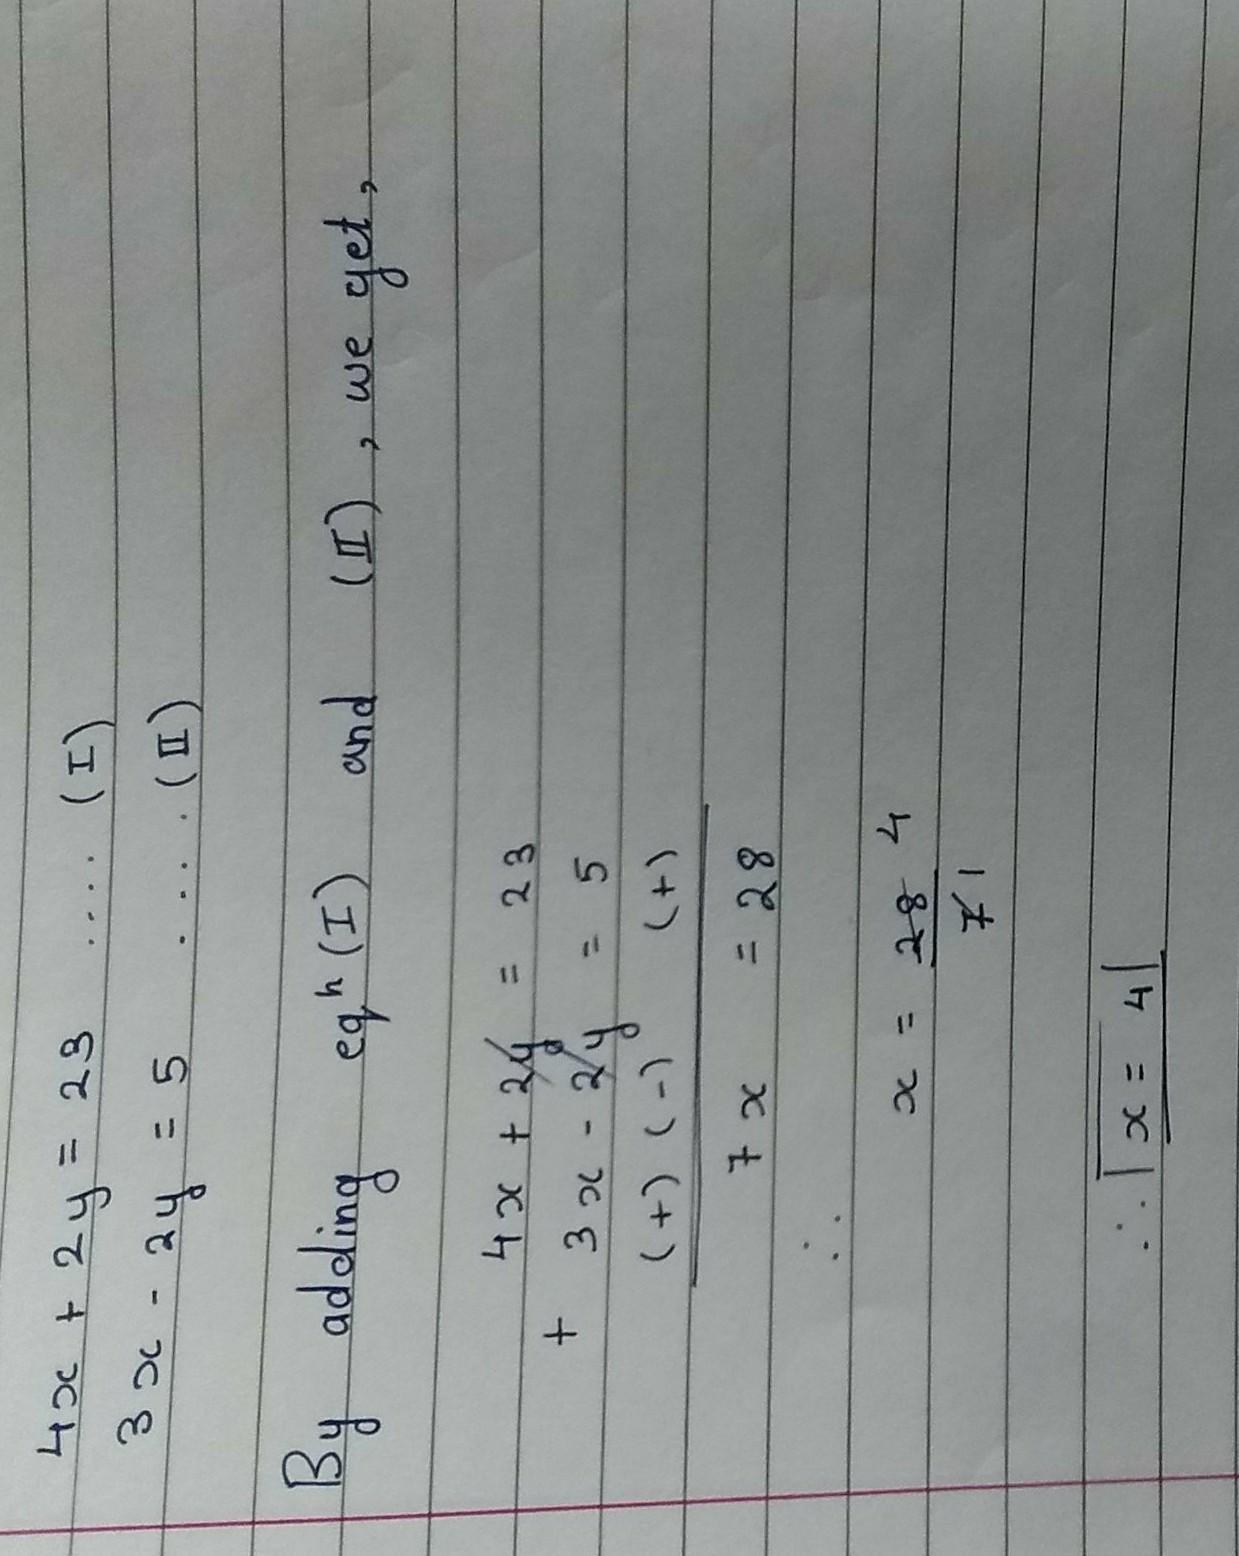 4x + 2y = 23 .... (I)
3x - 2y = 5 .... (II)
By adding eqⁿ (I) and (II), we get,
4x + 2y = 23
+ 3x - 2y = 5
(+) (-) (+)
7x = 28
∴ x = 28/7 4 1
∴ x = 4